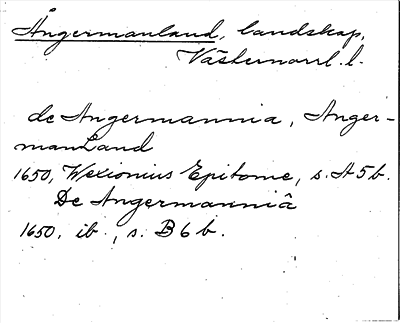 Ångermanland, landskap,
Västernorrl. l.
de Angermannia, Anger-
manLand
1650, Wexionius Epitome, s. A5b.
De Angermanniâ
1650, ib., s. B6b.